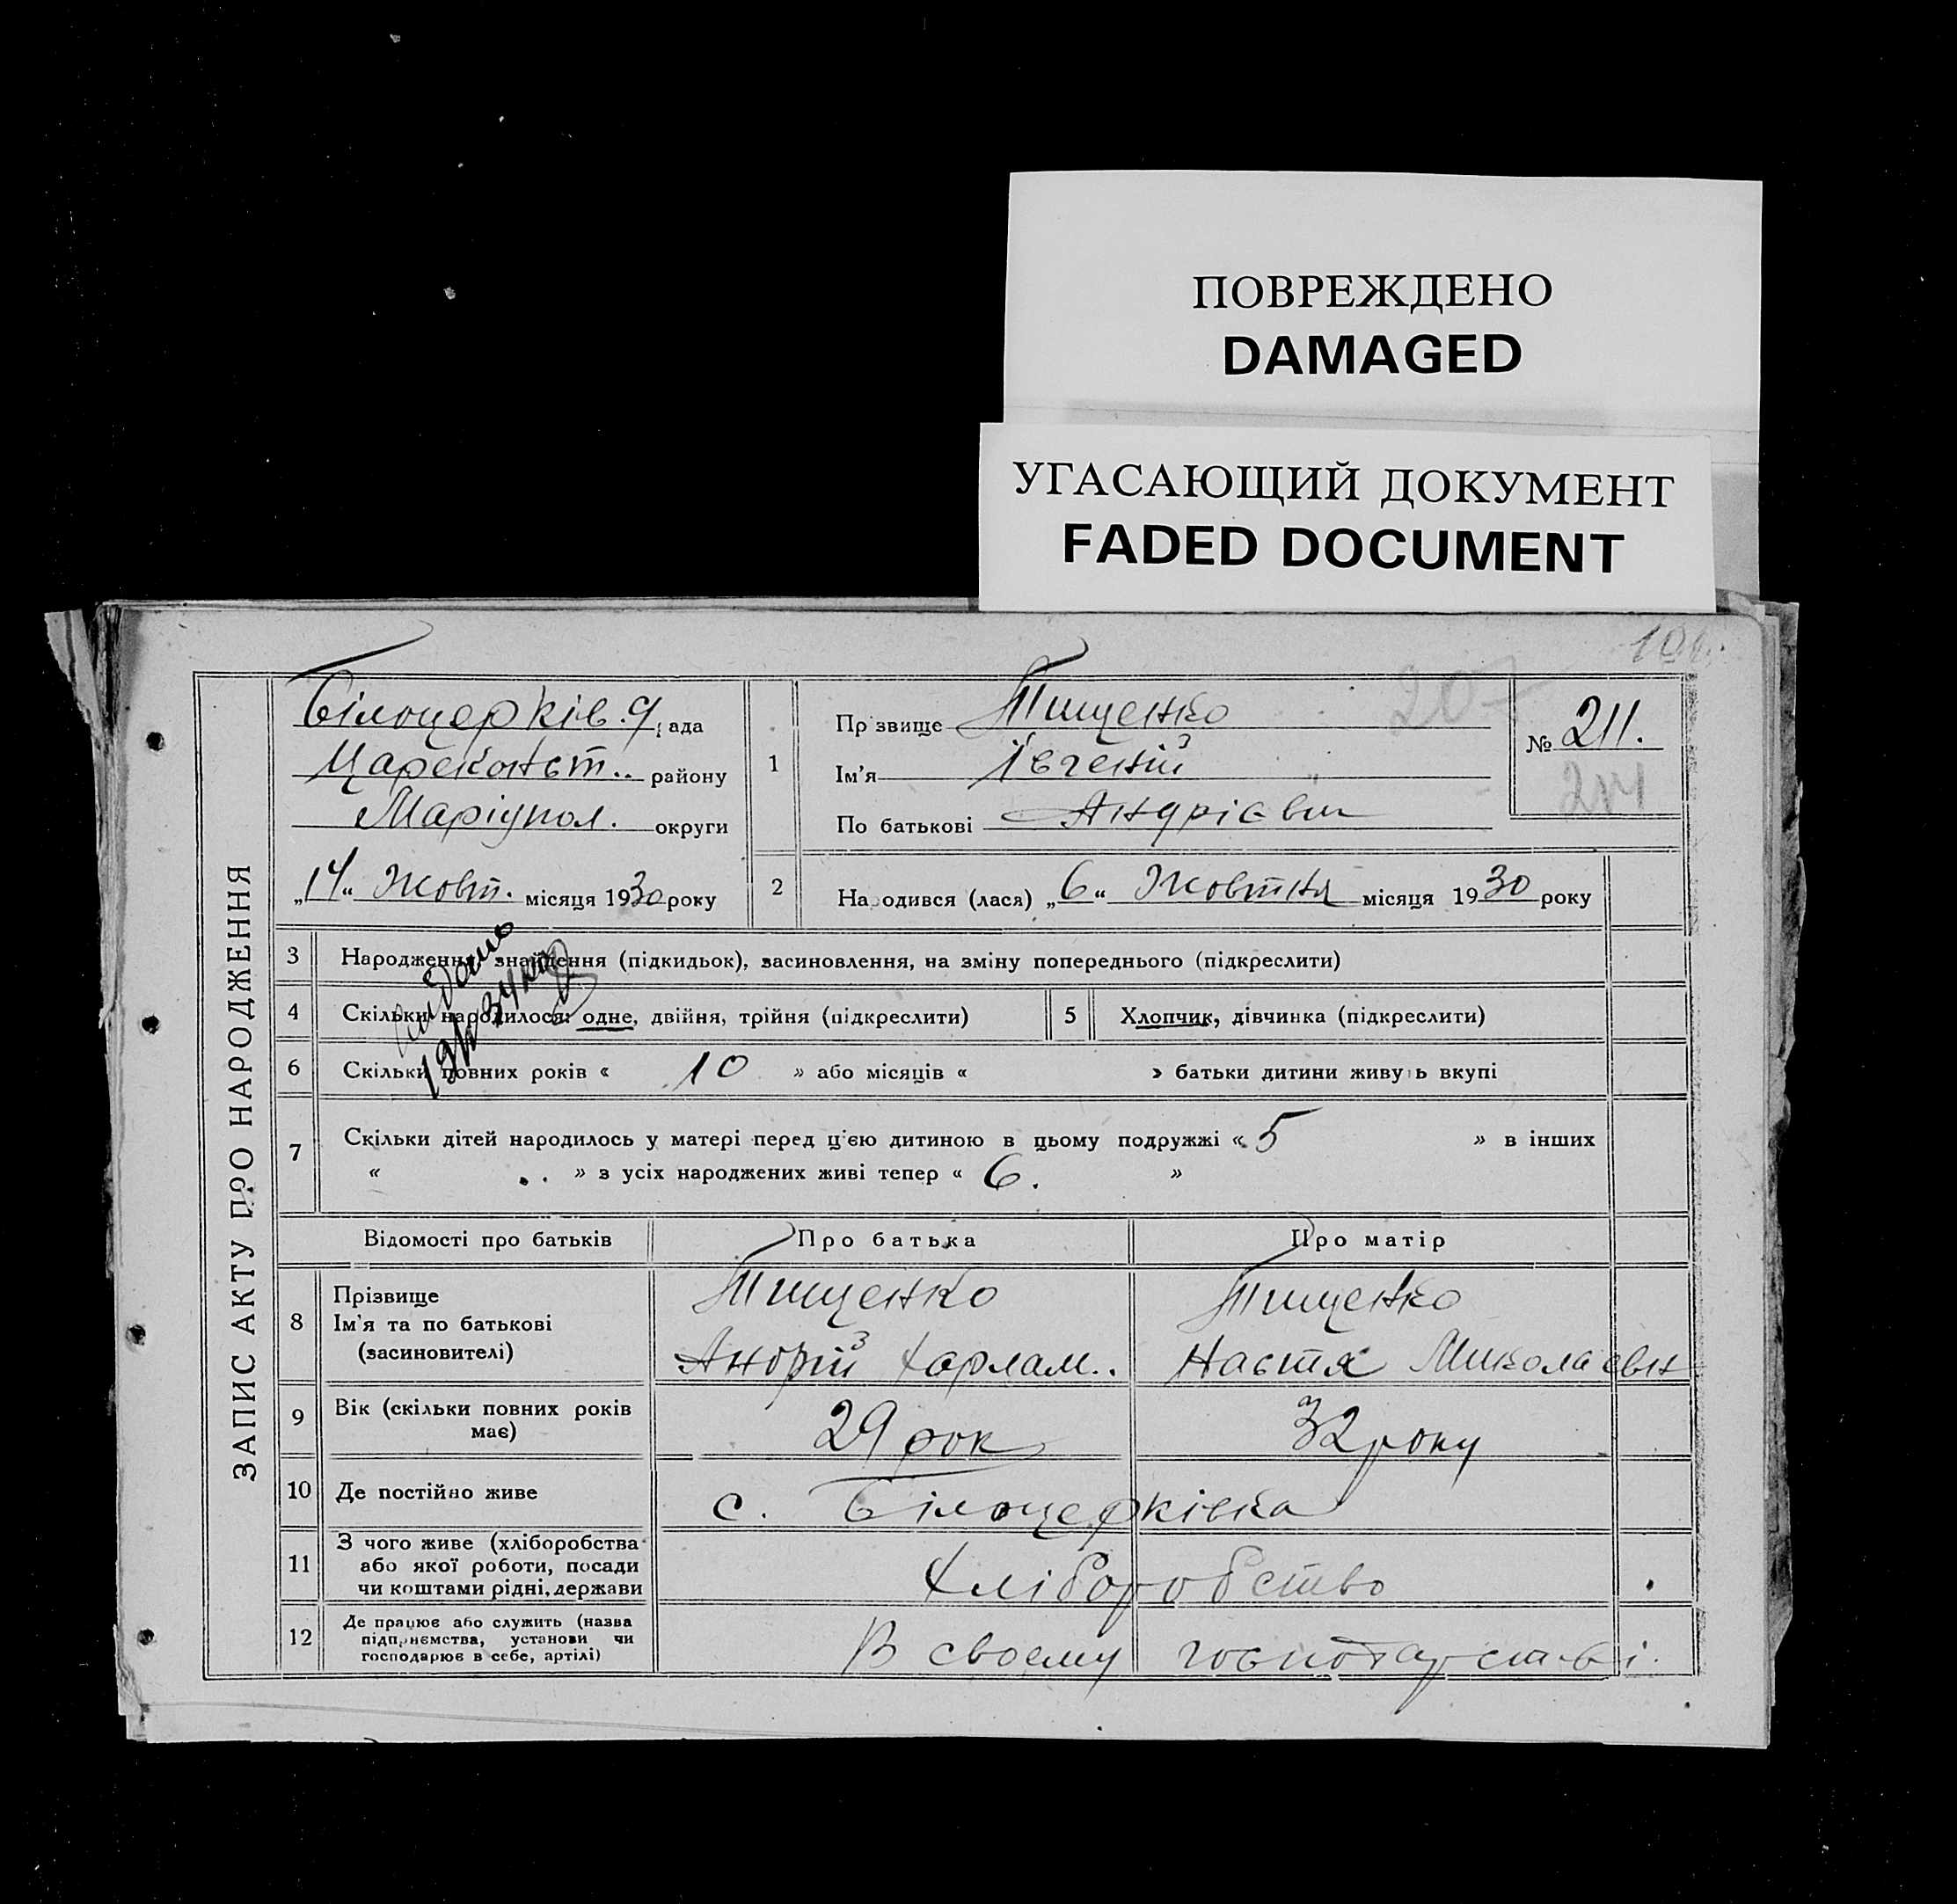 ПОВРЕЖДЕНО
DAMAGED
УГАСАЮЩИЙ ДОКУМЕНТ
FADED DOCUMENT
207
ЗАПИС АКТУ ПРО НАРОДЖЕННЯ
Білоцерків. рада
Царекаст.. району
Маріупол. округи
„14“ Жовт. місяця 1930 року
1
Прізвище Тищенко
Ім'я Івгеній
По батькові Андрієвич
№ 211.
2
Народився (лася) „6“ Жовтня місяця 1930 року
3 Народження, знайдення (підкидьок), засиновлення, на зміну попереднього (підкреслити)
4 Скільки народилося: одне, двійня, трійня (підкреслити)
5 Хлопчик, дівчинка (підкреслити)
6 Скільки повних років « 10 » або місяців « » батьки дитини живуть вкупі
7 Скільки дітей народилось у матері перед цією дитиною в цьому подружжі « 5 » в інших
« » з усіх народжених живі тепер « 6. »
Відомості про батьків Про батька Про матір
8 Прізвище
Ім'я та по батькові
(засиновителі)
Тищенко
Андрій Харлам..
Тищенко
Настя Миколаєвн
9 Вік (скільки повних років
має)
29 рок 32 року
10 Де постійно живе с. Білоцерківка
11 З чого живе (хліборобства
або якої роботи, посади
чи коштами рідні, держави
Хліборобство
12 Де працює або служить (назва
підприємства, установи чи
господарює в себе, артілі)
В своему господарстві.